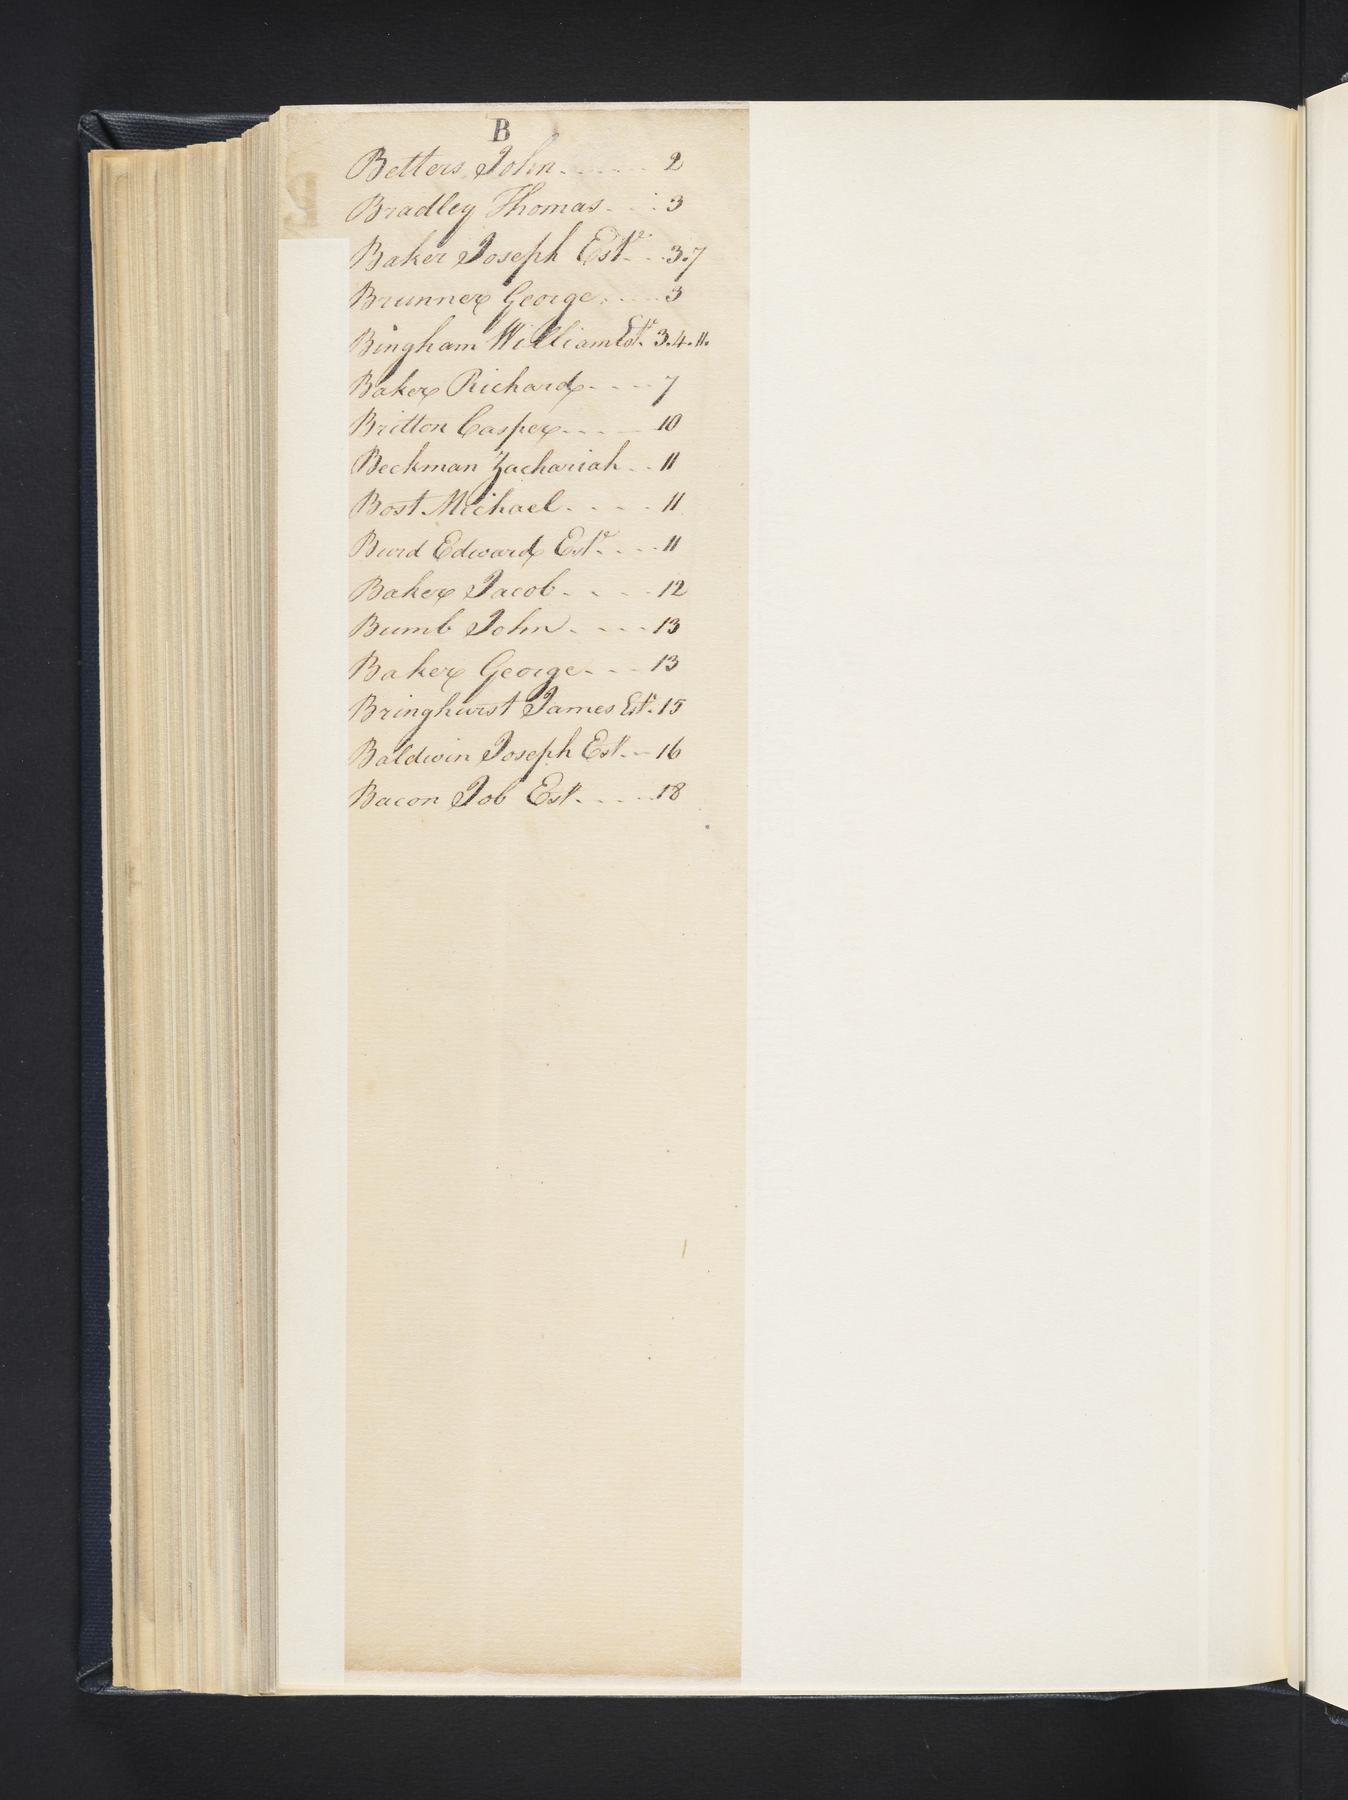 B
Betters John 2
Bradley Thomas 3
Baker Joseph Estᵉ 3.7
Brunner George 3
Bingham William Estᵉ 3.4.11.
Baker Richard 7
Britton Casper 10
Beckman Zachariah 11
Bost Michael 11
Burd Edward Estᵉ 11
Baker Jacob 12
Bumb John 13
Baker George 13
Bringhurst James Estᵉ 15
Baldwin Joseph Estᵉ 16
Bacon Job Estᵉ 18